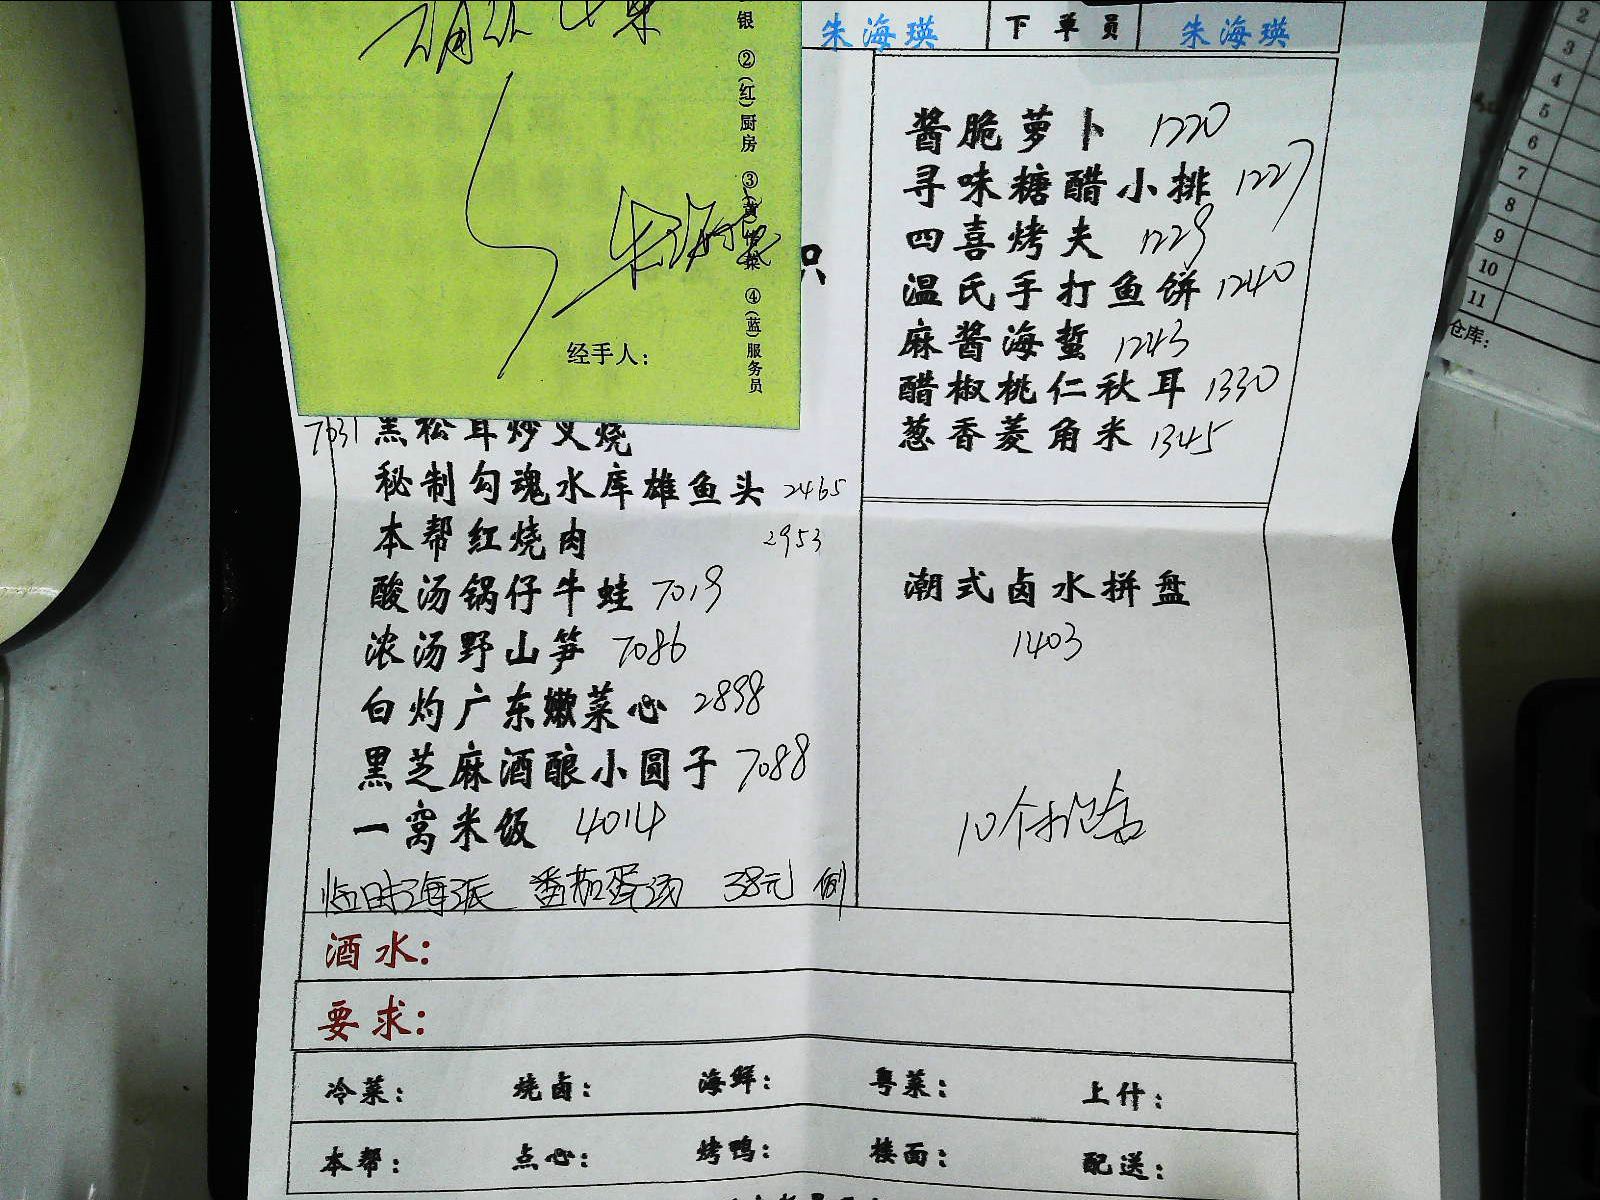 朱海瑛 下单员 朱海瑛
银 ②(红)厨房 ③(黄)传菜 ④(蓝)服务员
经手人：
酱脆萝卜 1220
寻味糖醋小排 1227
四喜烤夫 1229
温氏手打鱼饼 1240
麻酱海蜇 1243
醋椒桃仁秋耳 1330
葱香菱角米 1345
7031 黑松茸炒叉烧
秘制勾魂水库雄鱼头 2465
本帮红烧肉 2953
酸汤锅仔牛蛙 7019
浓汤野山笋 7086
白灼广东嫩菜心 2898
黑芝麻酒酿小圆子 7088
一窝米饭 4014
临时海派 番茄蛋汤 38元 例
潮式卤水拼盘
1403
10个打包盒
酒水：
要求：
冷菜： 烧卤： 海鲜： 粤菜： 上什：
本帮： 点心： 烤鸭： 楼面： 配送：
2
3
4
5
6
7
8
9
10
11
仓库：